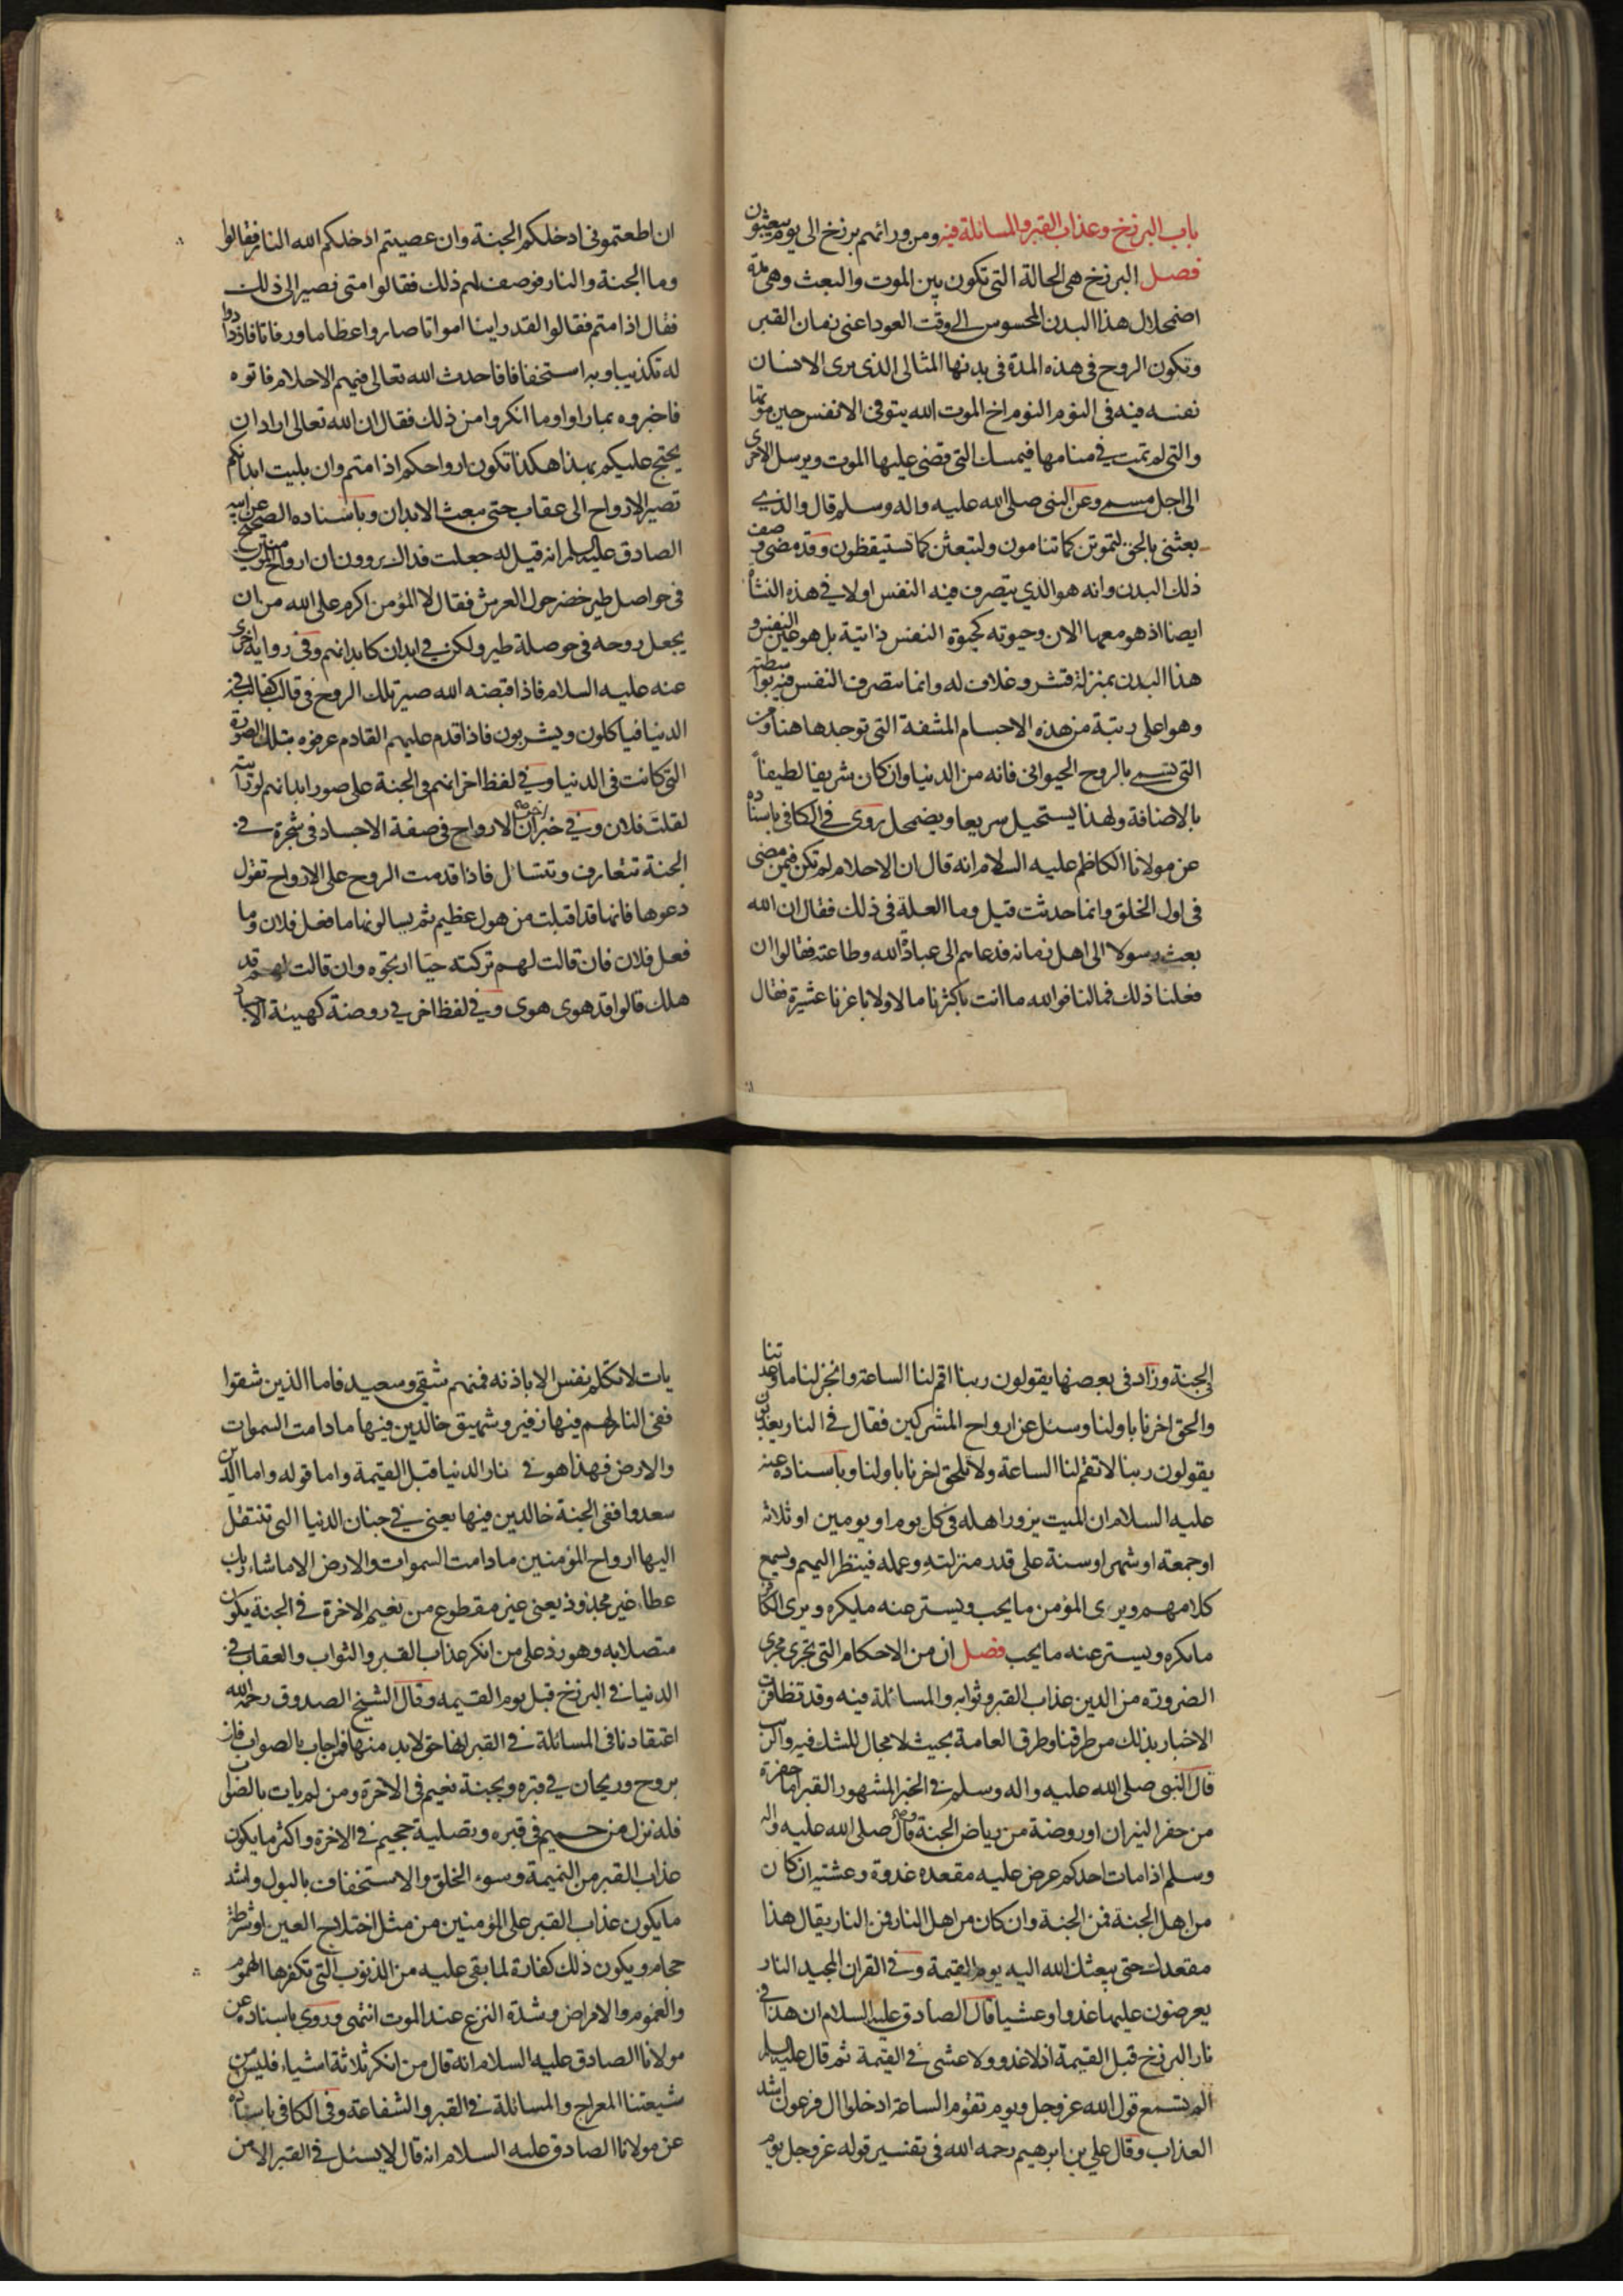 باب البرزخ وعذاب القبر والمسائلة فيه ومن ورائهم برزخ الى يوم يبعثون
فصل البرزخ هى الحالة التى تكون بين الموت والبعث وهى مدة
اضمحلال هذا البدن المحسوس الى وقت العود اعنى زمان القبر
وتكون الروح فى هذه المدة فى بدنها المثالى الذى يرى الانسان
نفسه فيه فى النوم النوم اخ الموت الله يتوفى الانفس حين موتها
والتى لم تمت فى منامها فيمسك التى قضى عليها الموت ويرسل الاخرى
الى اجل مسمى وعن النبى صلى الله عليه واله وسلم قال والذى
بعثنى بالحق لتموتن كما تنامون ولتبعثن كما تستيقظون وقد مضى وصف
ذلك البدن وانه هو الذى يتصرف فيه النفس اولا فى هذه النشأة
ايضا اذ هو معها الان وحيوته كحيوة النفس ذاتية بل هو عين النفس و
هذا البدن بمنزلة قشر وغلاف له وانما تتصرف النفس فيه بواسطته
وهو اعلى رتبة من هذه الاجسام المشفة التى توجد هاهنا ومن
التى تسمى بالروح الحيوانى فانه من الدنيا وان كان شريفا لطيفاً
بالاضافة ولهذا يستحيل سريعا ويضمحل روى فى الكافى باسناده
عن مولانا الكاظم عليه السلام انه قال ان الاحلام لم تكن فيمن مضى
فى اول الخلق وانما حدثت قيل وما العلة فى ذلك فقال ان الله
بعث رسولا الى اهل زمانه فدعاهم الى عبادة الله وطاعته فقالوا ان
فعلنا ذلك فمالنا فوالله ما انت باكثرنا مالا ولا باعزنا عشيرة فقال
ان اطعتمونى ادخلكم الجنة وان عصيتم ادخلكم الله النار فقالوا
وما الجنة والنار فوصف لهم ذلك فقالوا متى نصير الى ذلك
فقال اذا متم فقالوا لقد راينا امواتا صاروا عظاما ورفاتا فازدادوا
له تكذيبا وبه استخفافا فاحدث الله تعالى فيهم الاحلام فاتوه
فاخبروه بما راوا وما انكروا من ذلك فقال ان الله تعالى اراد ان
يحتج عليكم بهذا هكذا تكون ارواحكم اذا متم وان بليت ابدانكم
تصير الارواح الى عقاب حتى مبعث الابدان وباسناده الصحيح عن
الصادق عليه السلم انه قيل له جعلت فداك يروون ان ارواح المؤمنين
فى حواصل طير خضر حول العرش فقال لا المؤمن اكرم على الله من ان
يجعل روحه فى حوصلة طير ولكن فى ابدان كابدانهم وفى رواية اخرى
عنه عليه السلام فاذا قبضه الله صير تلك الروح فى قالب كقالبه فى
الدنيا فياكلون ويشربون فاذا قدم عليهم القادم عرفوه بتلك الصورة
التى كانت فى الدنيا وفى لفظ اخر انهم فى الجنة على صور ابدانهم لو رايته
لقلت فلان وفى خبر اخر ان الارواح فى صفة الاجساد فى شجرة فى
الجنة تتعارف وتتسائل فاذا قدمت الروح على الارواح تقول
دعوها فانها قد اقبلت من هول عظيم ثم يسالونها ما فعل فلان وما
فعل فلان فان قالت لهم تركته حيا ارتجوه وان قالت لهم قد
هلك قالوا قد هوى هوى وفى لفظ اخر فى روضة كهيئة الاجساد
فى الجنة وزاد فى بعضها يقولون ربنا اقم لنا الساعة وانجز لنا ما وعدتنا
والحق اخرنا باولنا وسئل عن ارواح المشركين فقال فى النار يعذبون
يقولون ربنا لا تقم لنا الساعة ولا تلحق اخرنا باولنا وباسناده عنه
عليه السلام ان الميت يزور اهله فى كل يوم او يومين او ثلاثه
او جمعة او شهر او سنة على قدر منزلته وعمله فينظر اليهم ويسمع
كلامهم ويرى المؤمن ما يحب ويستر عنه ما يكره ويرى الكافر
ما يكره ويستر عنه ما يحب فصل ان من الاحكام التى تجرى مجرى
الضرورة من الدين عذاب القبر وثوابه والمسائلة فيه وقد تظافرت
الاخبار بذلك من طرقنا وطرق العامة بحيث لا مجال للشك فيه
قال النبى صلى الله عليه واله وسلم فى الخبر المشهور القبر اما حفرة
من حفر النيران او روضة من رياض الجنة وقال صلى الله عليه واله
وسلم اذا مات احدكم عرض عليه مقعده غدوة وعشية ان كان
من اهل الجنة فمن الجنة وان كان من اهل النار فمن النار يقال هذا
مقعدك حتى يبعثك الله اليه يوم القيمة وفى القران المجيد النار
يعرضون عليها غدوا وعشيا قال الصادق عليه السلام ان هذا فى
نار البرزخ قبل القيمة اذ لا غدو ولا عشى فى القيمة ثم قال عليه السلم
الم تسمع قول الله عز وجل ويوم تقوم الساعة ادخلوا ال فرعون اشد
العذاب وقال على بن ابرهيم رحمه الله فى تفسير قوله عز وجل يوم
يات لا تكلم نفس الا باذنه فمنهم شقى وسعيد فاما الذين شقوا
ففى النار لهم فيها زفير وشهيق خالدين فيها ما دامت السموات
والارض فهذا هو فى نار الدنيا قبل القيمة واما قوله واما الذين
سعدوا ففى الجنة خالدين فيها يعنى فى جنان الدنيا التى تنتقل
اليها ارواح المؤمنين ما دامت السموات والارض الا ما شاء ربك
عطاء غير مجذوذ يعنى غير مقطوع من نعيم الاخرة فى الجنة يكون
متصلا به وهو رد على من انكر عذاب القبر والثواب والعقاب فى
الدنيا فى البرزخ قبل يوم القيمه وقال الشيخ الصدوق رحمه الله
اعتقادنا فى المسائلة فى القبر انها حق لابد منها فمن اجاب بالصواب فاز
بروح وريحان فى قبره وبجنة نعيم فى الاخرة ومن لم يات بالصواب
فله نزل من حميم فى قبره وتصلية جحيم فى الاخرة واكثر ما يكون
عذاب القبر من النميمة وسوء الخلق والاستخفاف بالبول واشد
ما يكون عذاب القبر على المؤمنين من مثل اختلاج العين او شرطة
حجام ويكون ذلك كفارة لما بقى عليه من الذنوب التى تكفرها الهموم
والغموم والامراض وشدة النزع عند الموت انتهى وروى باسناده عن
مولانا الصادق عليه السلام انه قال من انكر ثلاثة اشياء فليس من
شيعتنا المعراج والمسائلة فى القبر والشفاعة وفى الكافى باسناده
عن مولانا الصادق عليه السلام انه قال لا يسئل فى القبر الا من